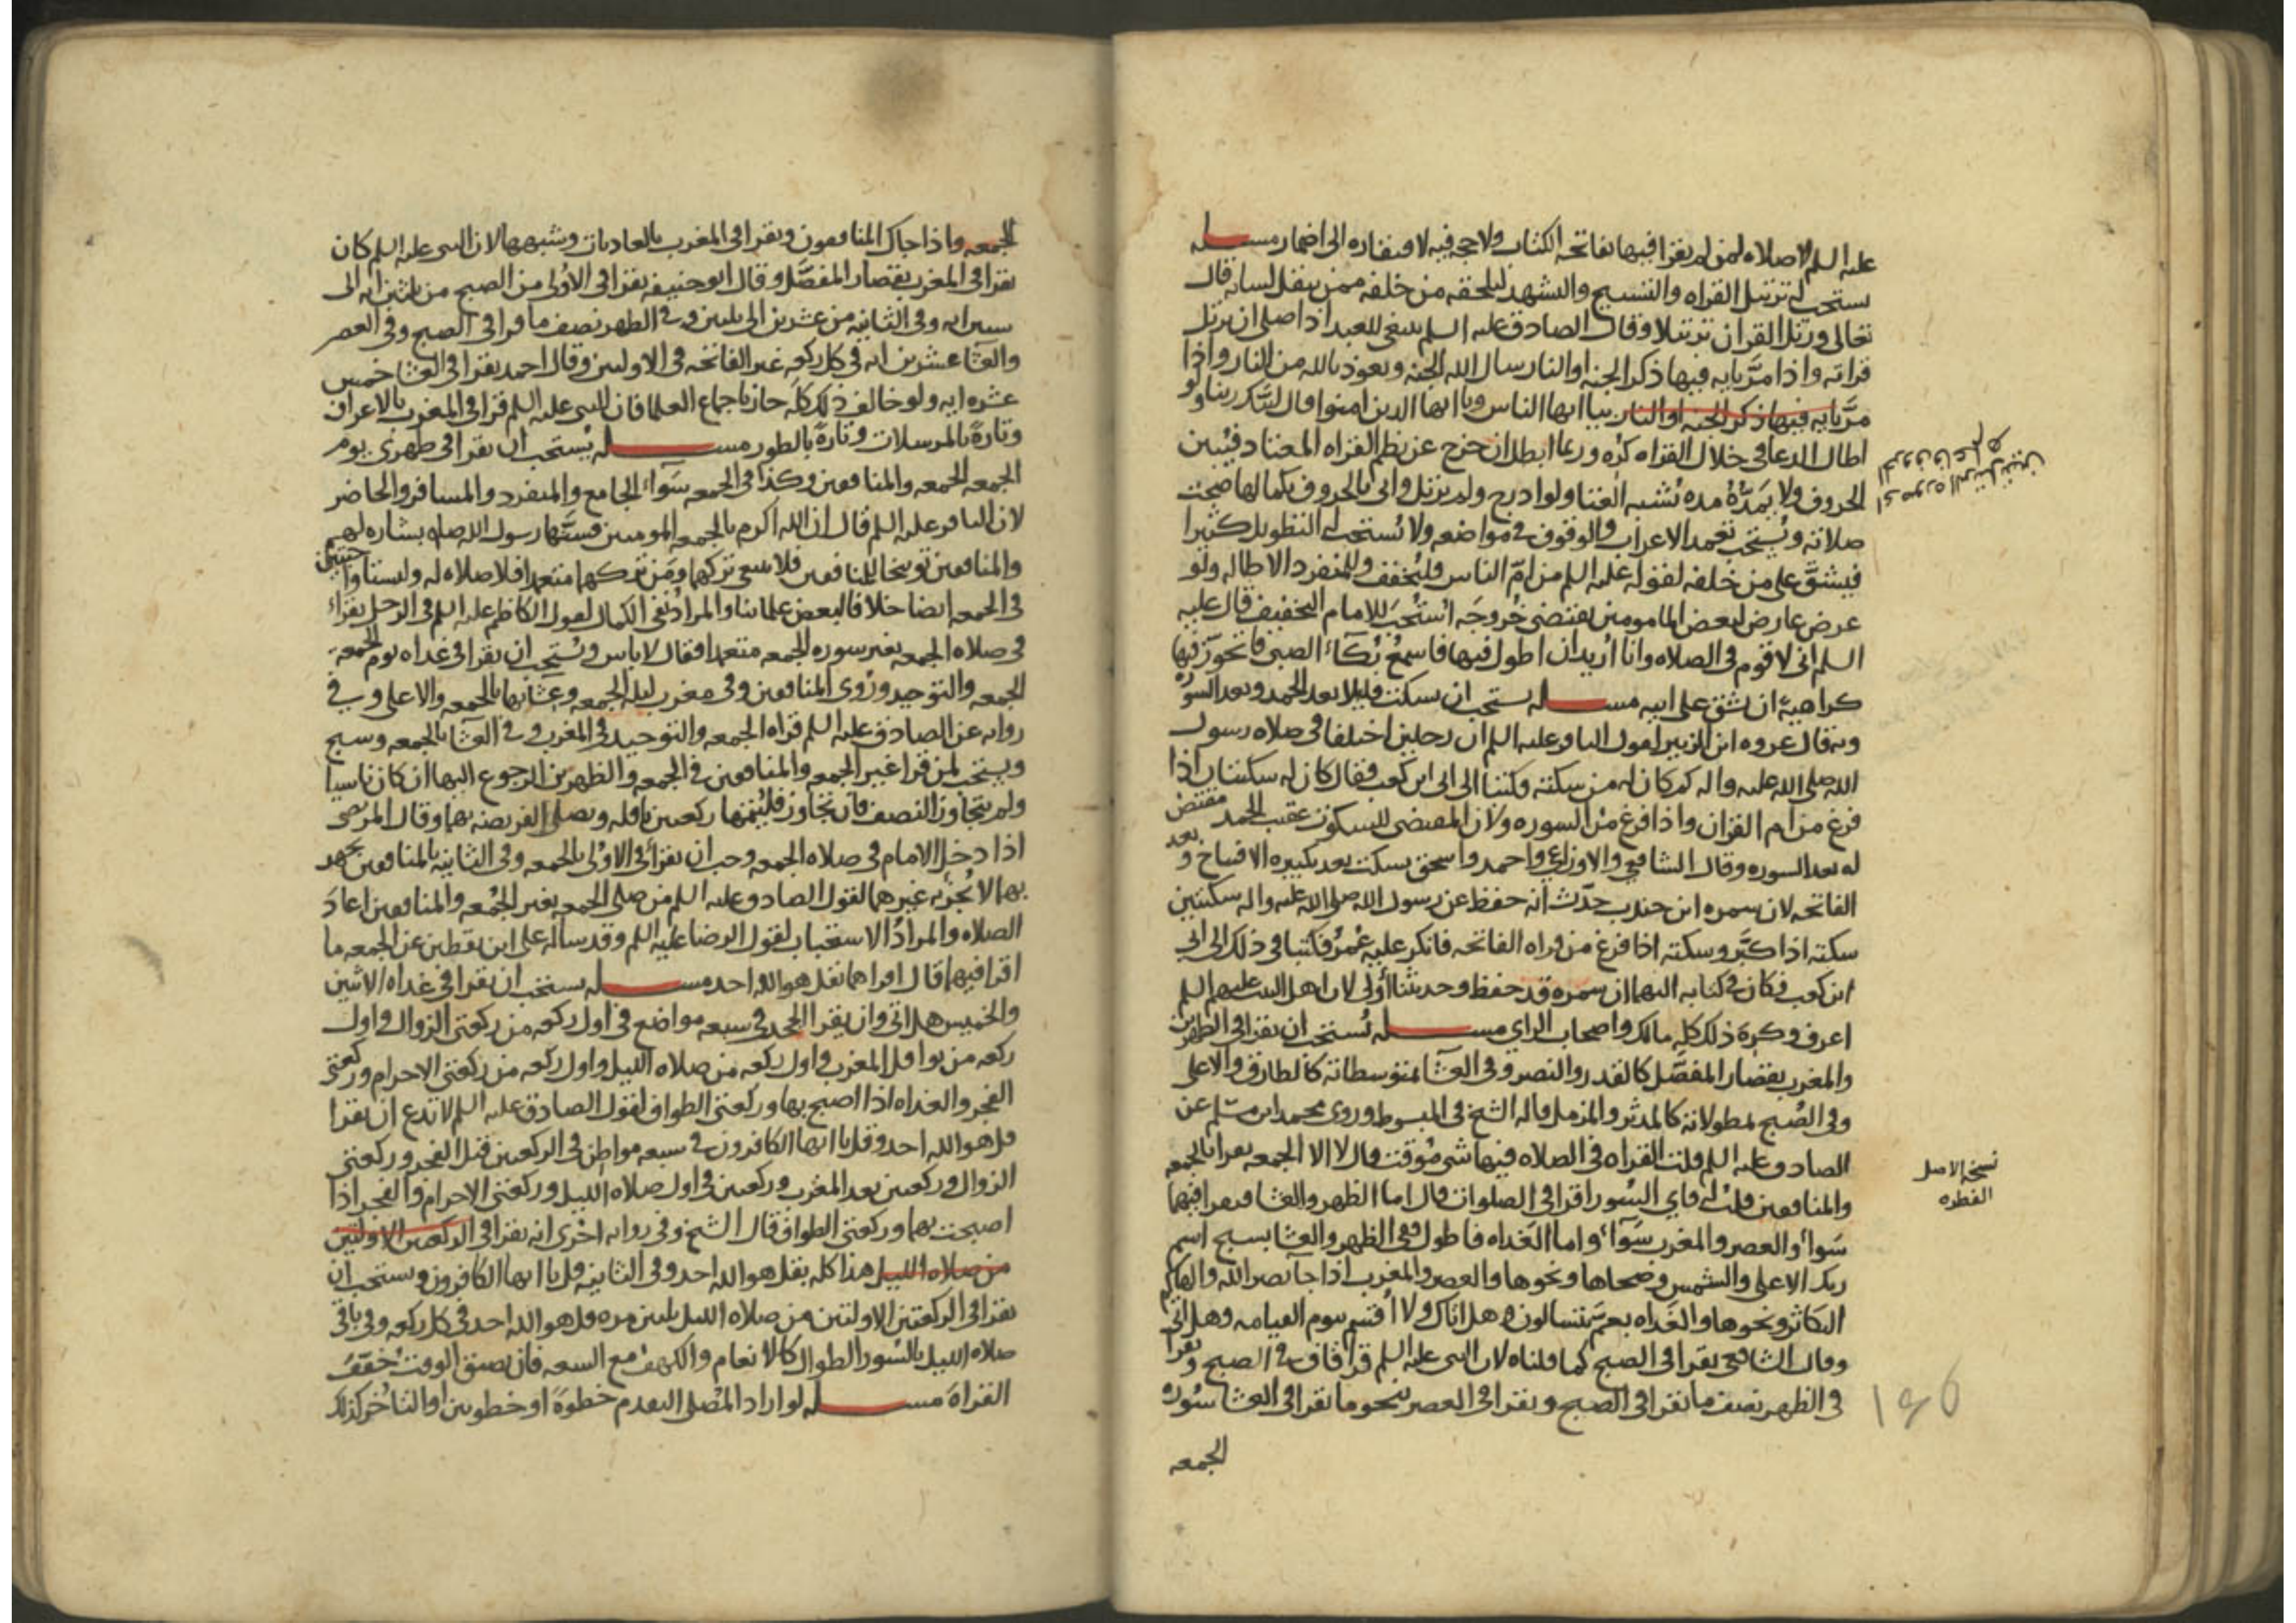 عليه السلم لا صلاه لمن لم يقرا فيها بفاتحه الكتاب ولا حجه فيه لافتقاره الى اضمار مسله
يستحب له ترتيل القراه والتسبيح والتشهد ليلحقه من خلفه ممن يثقل لسانه قال
تعالى ورتل القران ترتيلا وقال الصادق عليه السلم ينبغي للعبد اذا صلى ان يرتل
قراته واذا مرَّ بايه فيها ذكر الجنه او النار سال الله الجنه وتعوذ بالله من النار واذا
مرَّ بايه فيها ذكر الجنه او النار بيا ايها الناس ويا ايها الذين امنوا قال لبَّيك ربنا ولو
اطال الدعا في خلال القراه كُره وربما ابطل ان خرج عن نظم القراه المعتاد فيُبين
الحروف ولا يمدّهُ مده تُشبه الغنا ولو ادرج ولم يرتل واتى بالحروف بكمالها صحت
صلاته ويُستحب تعمد الاعراب والوقوف في مواضعه ولا يُستحب له التطويل كثيرا
فيشقَّ على من خلفه لقوله عليه السلم من امّ الناس فليُخفف وللمنفرد الاطاله ولو
عرض عارض لبعض المامومين يقتضى خُروجَه استُحبَّ للامام التخفيف قال عليه
السلم انى لاقوم فى الصلاه وانا اُريد ان اطول فيها فاسمعُ بُكآء الصبى فاتحوّز فيها
كراهيهً ان يشق على ابيه مسله يستحب ان يسكت قليلا بعد الحمد وبعد السوره
وبه قال عروه ابن الزبير لقول الباقر عليه السلم ان رجلين اختلفا فى صلاه رسول
الله صلى الله عليه واله كم كان له من سكته فكتبا الى ابى ابن كعب فقال كان له سكتتان اذا
فرغ من ام القران واذا فرغ من السوره ولان المقتضى للسكوت عقيب الحمد مقتض
له بعد السوره وقال الشافعى والاوزاعى واحمد واسحق يسكت بعد تكبيره الافتتاح وبعد
الفاتحه لان سمره ابن جندب حدّث انه حفظ عن رسول الله صلى الله عليه واله سكتتين
سكته اذا كبّر وسكته اذا فرغ من قراه الفاتحه فانكر عليه عُمرُ فكتبا فى ذلك الى ابى
ابن كعب فكان فى كتابه اليهما ان سمره قد حفظ وحديثنا أولى لان اهل البيت عليهم السلم
اعرف وكره ذلك كله مالك واصحاب الراي مسله يُستحب ان يقرا فى الظهرين
والمغرب بقصار المفصّل كالقدر والنصر وفى العشا بمتوسطاته كالطارق والاعلى
وفى الصُبح بمطولاته كالمدثر والمزمل قاله الشيخ فى المبسوط وروى محمد ابن مسّلم عن
الصادق عليه السلم قلت القراه فى الصلاه فيها شى مُوقت قال لا الا الجمعه يقرا بالجمعه
والمنافقين قلتُ له فاي السُور اقرا فى الصلوات قال اما الظهر والعشا فيقرا فيهما
سَوآءً والعصر والمغرب سَوآءً واما الغداه فاطول ففى الظهر والعشا بسبح اسم
ربك الاعلى والشمس وضحاها ونحوها والعصر والمغرب اذا جا نصر الله والهاكم
التكاثر ونحوها والغَداه بعم يتسالون وهل اتاك ولا اُقسم بيوم القيامه وهل اتى
وقال الشافعى يقرا فى الصبح كما قلناه لان النبى عليه السلم قرا قاف فى الصبح ويقرا
فى الظهر نصف ما يقرا فى الصبح ويقرا فى العصر بنحو ما يقرا فى العشا سُوره
الجمعه
نسخه الاصل
الفطره
186
الجمعه واذا جاك المنافقون ويقرا فى المغرب بالعاديات وشبهها لان النبى عليه السلم كان
يقرا فى المغرب بقصار المفصَّل وقال ابو حنيفه يقرا فى الاُولى من الصبح من ثلثين ايه الى
ستين ايه وفى الثانيه من عشرين الى ثلثين وفى الظهر نصف ما قرا فى الصبح وفى العصر
والعشا عشرين ايه فى كل ركعه غير الفاتحه فى الاولتين وقال احمد يقرا فى العشا خمس
عشره ايه ولو خالف ذلك كلّه جاز باجماع العلما فان النبى عليه السلم قرا فى المغرب بالاعراف
وتارةً بالمرسلات وتارةً بالطور مسله يُستحب ان يقرا فى ظهرى يوم
الجمعه الجمعه والمنافقين وكذا فى الجمعه سَوآء الجامع والمنفرد والمسافر والحاضر
لان الباقر عليه السلم قال ان الله اكرم بالجمعه المومنين فسنَّها رسول الله صله بشاره لهم
والمنافقين توبيخا للمنافقين فلا ينبغى تركهما ومَن تركهما متعمدا فلا صلاه له وليستا واجبتين
فى الجمعه ايضا خلافا لبعض علمائنا والمرادُ نفى الكمال لقول الكاظم عليه السلم فى الرجل يقراء
فى صلاه الجمعه بغير سوره الجمعه متعمدا فقال لا باس ويُستحب ان يقرا فى غداه يوم الجمعه
الجمعه والتوحيد ورُوى المنافقين وفى مغرب ليله الجمعه وعِشائها بالجمعه والاعلى وفى
روايه عن الصادق عليه السلم قراه الجمعه والتوحيد فى المغرب وفى العشا بالجمعه وسبح
ويستحب لمن قرا غير الجمعه والمنافقين فى الجمعه والظهرين الرجوع اليهما ان كان ناسيا
ولم يتجاوز النصف فان تجاوز فليُتمها ركعتين نافله ويصلى الفريضه بهما وقال المرتضى
اذا دخل الامام فى صلاه الجمعه وجب ان يقرأ فى الاولى بالجمعه وفى الثانيه بالمنافقين يجهر
بهما لا تُجزئه غيرهما لقول الصادق عليه السلم من صلى الجمعه بغير الجُمعه والمنافقين اعادَ
الصلاه والمرادُ الاستحباب لقول الرضا عليه السلم وقد ساله على ابن يقطين عن الجمعه ما
اقرا فيهما قال اقراهما بقل هو الله احد مسله يستحب ان يقرا فى غداه الاثنين
والخميس هل اتى وان يقرا الجحد فى سبعه مواضع فى اول ركعه من ركعتى الزوال واول
ركعه من نوافل المغرب واول ركعه من صلاه الليل واول ركعه من ركعتى الاحرام وركعتى
الفجر والغداه اذا اصبح بها وركعتى الطواف لقول الصادق عليه السلم لا تدع ان تقرا
قل هو الله احد وقل يا ايها الكافرون فى سبعه مواطن فى الركعتين قبل الفجر وركعتى
الزوال وركعتين بعد المغرب وركعتين فى اول صلاه الليل وركعتى الاحرام والفجر اذا
اصبحت بهما وركعتى الطواف قال الشيخ وفى روايه اخرى انه يقرا فى الركعتين الاولتين
من صلاه الليل هذا كله بقل هو الله احد وفى الثانيه قل يا ايها الكافرون ويستحب ان
يقرا فى الركعتين الاولتين من صلاه الليل ثلثين مره قل هو الله احد فى كل ركعه وفى باقى
صلاه الليل بالسُور الطوال كالانعام والكهف مع السعه فان ضيق الوقت خفّفَ
القراةَ مسله لو اراد المصلى التقدم خطوةً او خطوتين او التاخُر كذلك